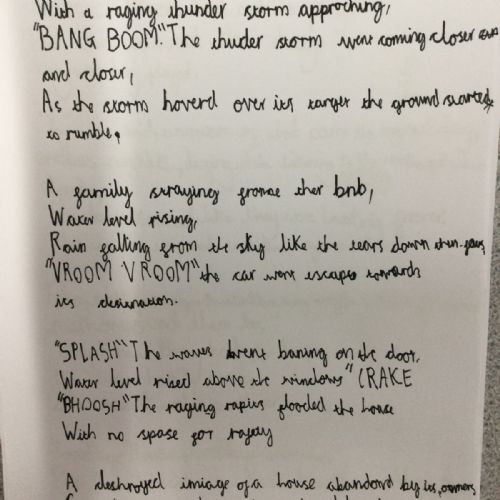 With a raging thunder storm approching,
"BANG BOOM". The thuder storm went coming closer
and closer,
As the storm hoverd over its target the ground started
to rumble,
A family straying their bnb,
Water level rising,
Rain falling from the sky like the tears down
"VROOM VROOM" the car went escape towards
its desination.
"SPLASH" The waves went baning on the door.
Water level rised above the windows" CRAKE
"BHOOSH" The raging rapids flooded the house
With no spase for
A deshroyed imiage of a house abandond by its owners,